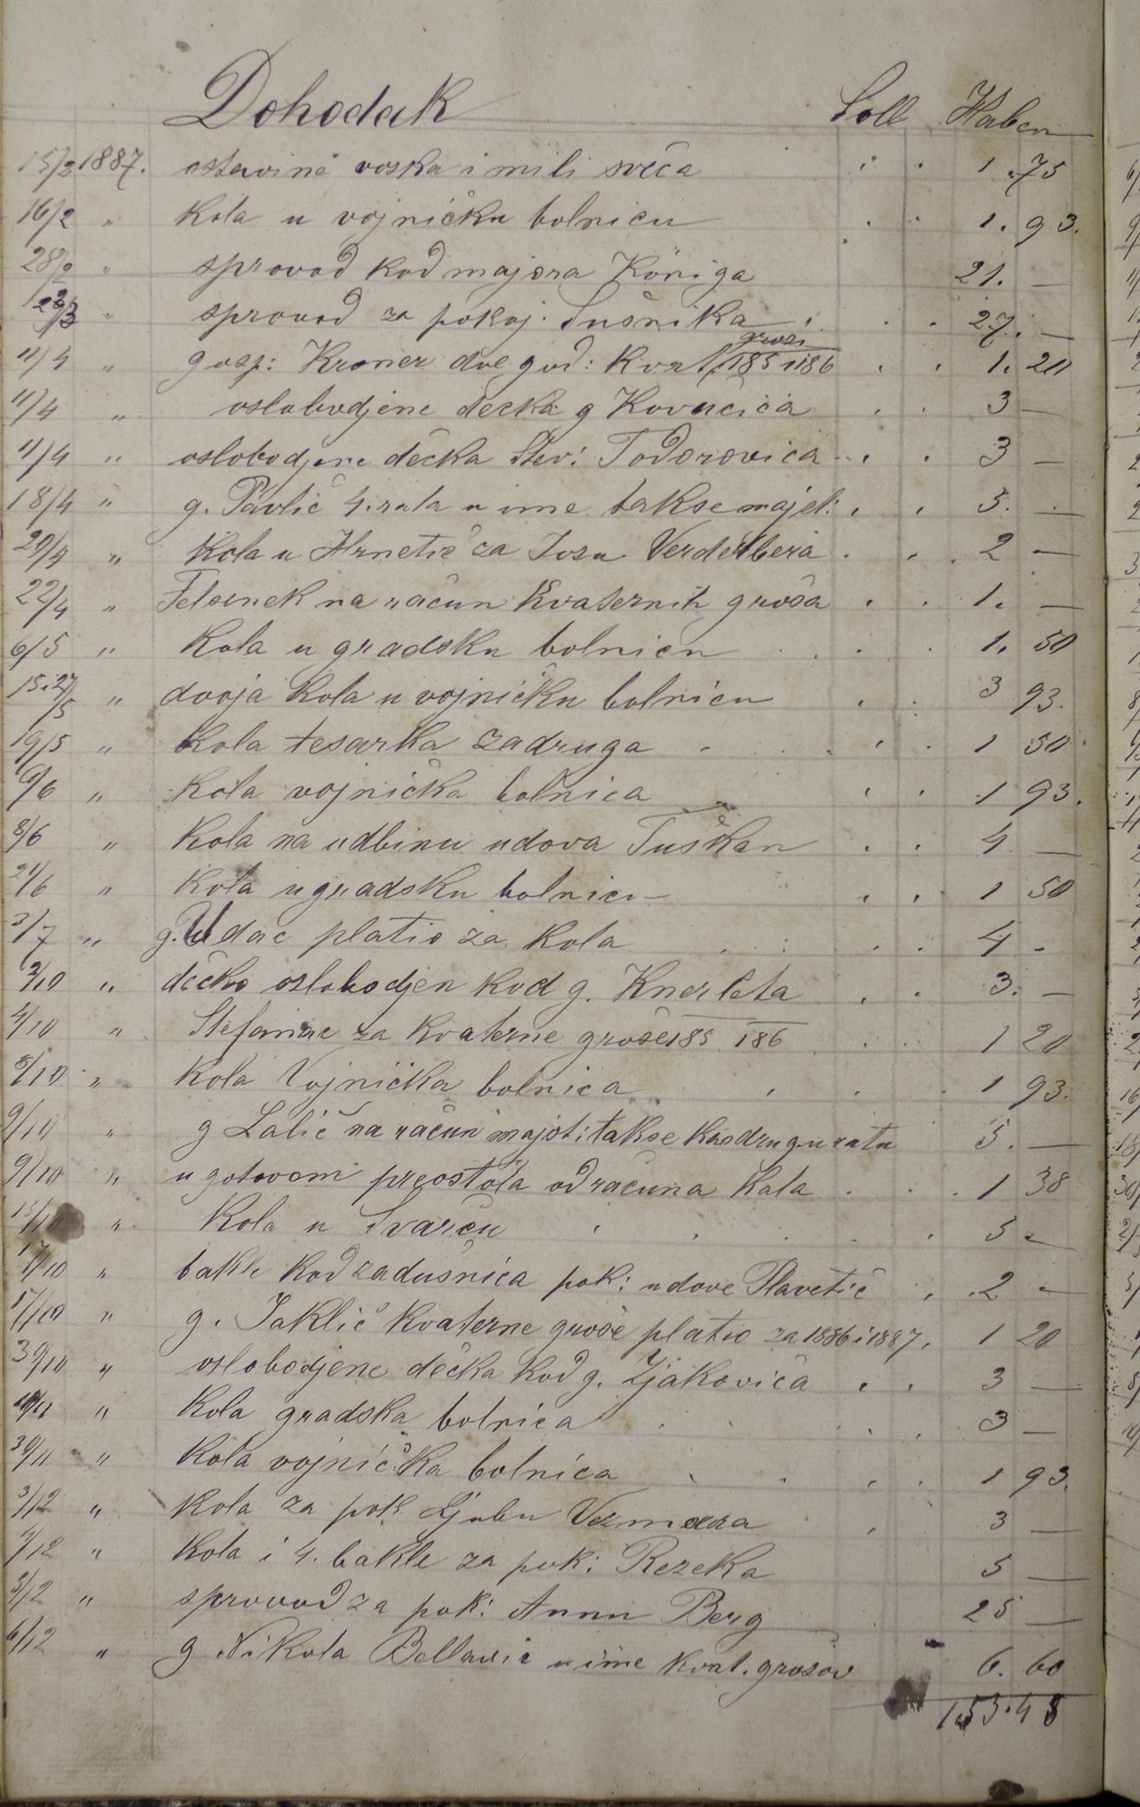 Dohodak Soll Haben
15/2 1887. ostavine voska i mili sveća 1.75
16/2 " Kola u vojničku bolnicu 1.93.
28/2 " sprovod kod majora Königa 21. —
23/3 " sprovod za pokoj. Sušnika 27. —
groši
11/4 " gosp: Kroner dve god: Kvat 185 i 186 1. 20
11/4 " oslobodjene dečka g Kovačića 3 —
11/4 " oslobodjene dečka Stev: Todorovića 3 —
18/4 " g. Pavlić 4. rata u ime takse majst: 5. —
20/4 " Kola u Hrnetić za Verderbera 2 —
22/4 " na račun Kvaternih groša 1. —
6/5 " Kola u gradsku bolnicu 1. 50
15. 27/5 " dvoja kola u vojničku bolnicu 3 93.
19/5 " Kola tesarka zadruga 1 50
6/6 " Kola vojnička bolnica 1 93.
8/6 " Kola na udbinu udova Tuškan 4 —
21/6 " Kola u gradsku bolnicu 1 50
3/7 " g. Udac platio za Kola 4 -
2/10 " dečko oslobodjen kod g. Knerleta 3. —
4/10 " Stefanac za kvaterne groše 185 i 86 1 20
8/10 " Kola Vojnička bolnica 1 93.
9/10 " g Lalić na račun majst: takse kao drugu ratu 5. —
9/10 " u gotovom preostola od računa Kola 1 38
15/10 " Kola u Švarču 5 -
17/10 " bakle kod zadušnica pok: udove Plavetić 2 -
17/10 " g. Jaklić kvaterne groše platio za 1886 i 1887. 1 20
30/10 " oslobodjene dečka kod g. Zjakovića 3 —
" Kola gradska bolnica 3 —
30/11 " Kola vojnička bolnica 1 93.
3/12 " Kola za pok Ljubu Vezmara 3 —
" Kola i 4. bakle za pok: Rezeka 5 —
3/12 " sprovod za pok: Annu Berg 25 —
6/12 " g Nikola Bellavić u ime kvat. grošov 6. 60
153.48